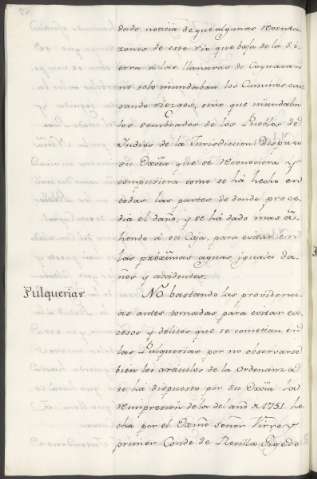 dado noticia de que algunas Rebenta-
zones de este rio que baja de la Si-
erra a las llanuras de Coyoacan
no solo inundaban los Caminos cau-
sando riezgos, sino que inundaba
los sembrados de los Pueblos de
Yndios de la Jurisdiccion; Dispuso
su Exâ que se removiera y
compusiera como se há hecho en
todas las partes de donde proce-
dia el daño, y se há dado mas an-
chura a su Caja, para evitar en
las proximas aguas iguales da-
ños y accidentes.
Pulquerias
No bastando las providenci-
as antes tomadas para evitar ex-
cesos y delitos que se cometian en
las Pulquerias por no observarse
bien los articulos de la Ordenanza
se ha dispuesto por su Exâ la
reimpresion de la del año de 1751. he-
cha por el Exmô Señor Virrey
primer Conde de Revilla Gigedo